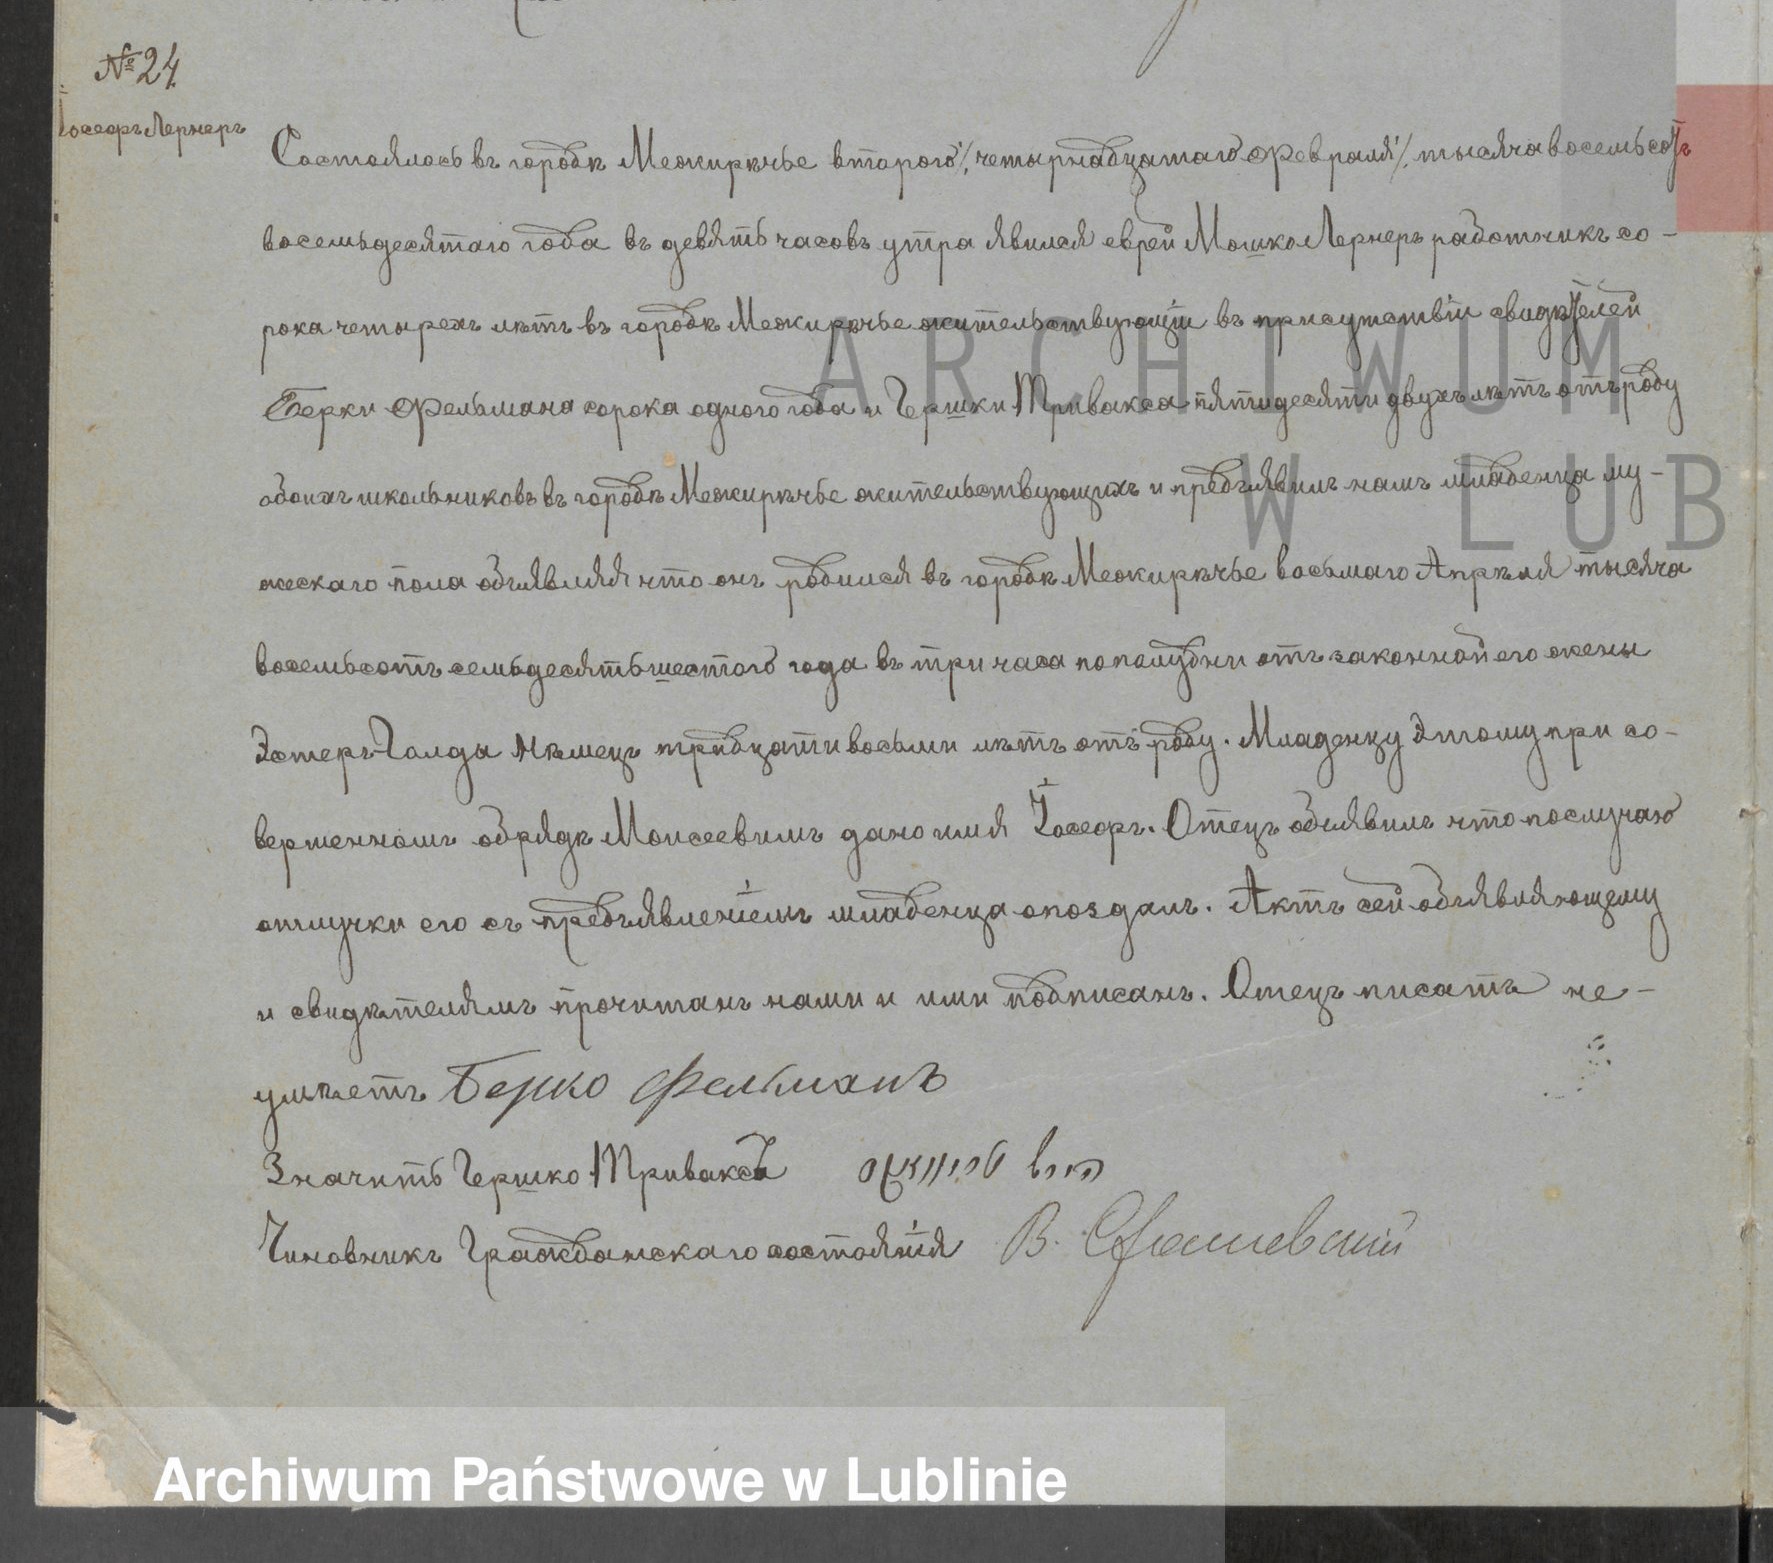 № 24
Іосефъ Лернеръ
Состоялось въ городѣ Межирѣчье второго /четырнадцатаго Февраля/ тысяча восемьсотъ
восемьдесятаго года въ девять часовъ утра явился еврей Мошко Лернеръ работникъ со-
рока четырехъ лѣтъ въ городѣ Межирѣчье жительствующій въ присутствіи свидѣтелей
Берки Фельмана сорока одного года и Гершки Тривакса пятидесяти двухъ лѣтъ отъ роду
обоихъ школьниковъ въ городѣ Межирѣчье жительствующихъ и предъявилъ намъ младенца му-
жескаго пола объявляя что онъ родился въ городѣ Межирѣчье восьмаго Апрѣля тысяча
восемьсотъ семьдесять шестого года въ три часа пополудни отъ законной его жены
Эстеръ-Голда Нѣмецъ тридцати восьми лѣтъ отъ роду. Младенцу этому при со-
вершенномъ обрядѣ Моисеевимъ дано имя Іосефъ. Отецъ объявилъ что по случаю
отлучки его съ предъявленіемъ младенца опоздалъ. Актъ сей объявляющему
и свидѣтелямъ прочитанъ нами и ими подписанъ. Отецъ писать не-
умѣетъ Берко Фельманъ
Значитъ Гершко Триваксъ
Чиновникъ Гражданскаго состоянія В.
ARCHIWUM
W LUB
Archiwum Państwowe w Lublinie